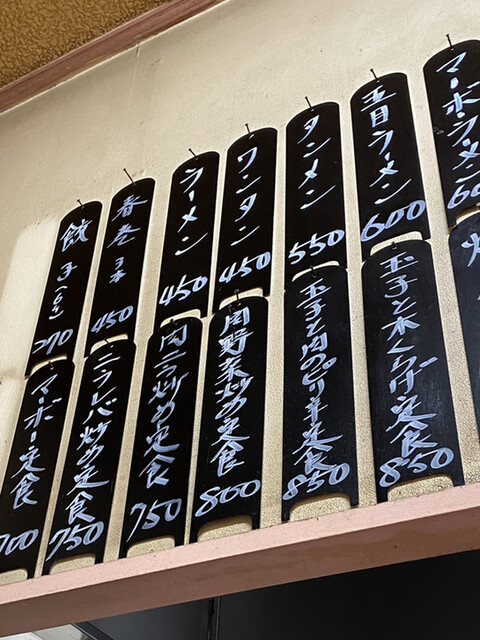 餃子(6ケ) 270
春巻 3本 450
ラーメン 450
ワンタン 450
タンメン 550
五目ラーメン 600
マーボーラーメン
マーボー定食 700
ニラレバ炒め定食 750
肉ニラ炒め定食 750
肉野菜炒め定食 800
玉子と肉のピリ辛定食 850
玉子と木くらげ定食 850